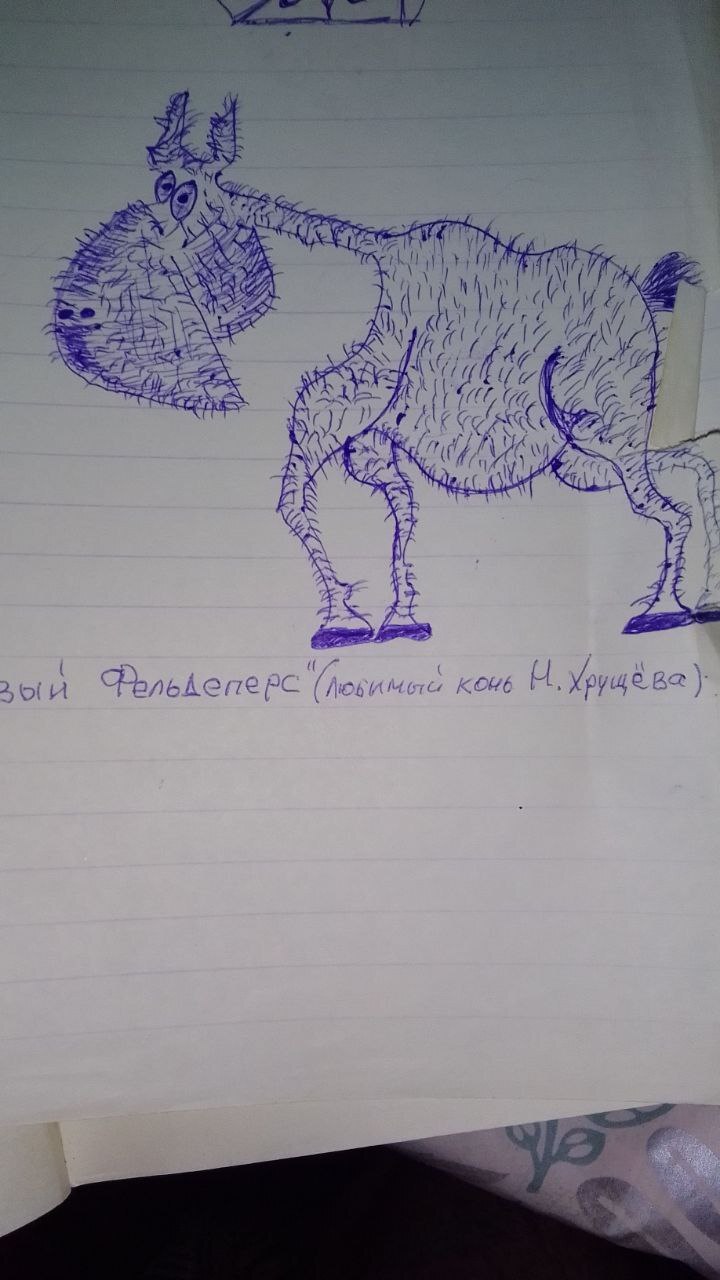 вый Фельдеперс" (любимый конь Н. Хрущёва).